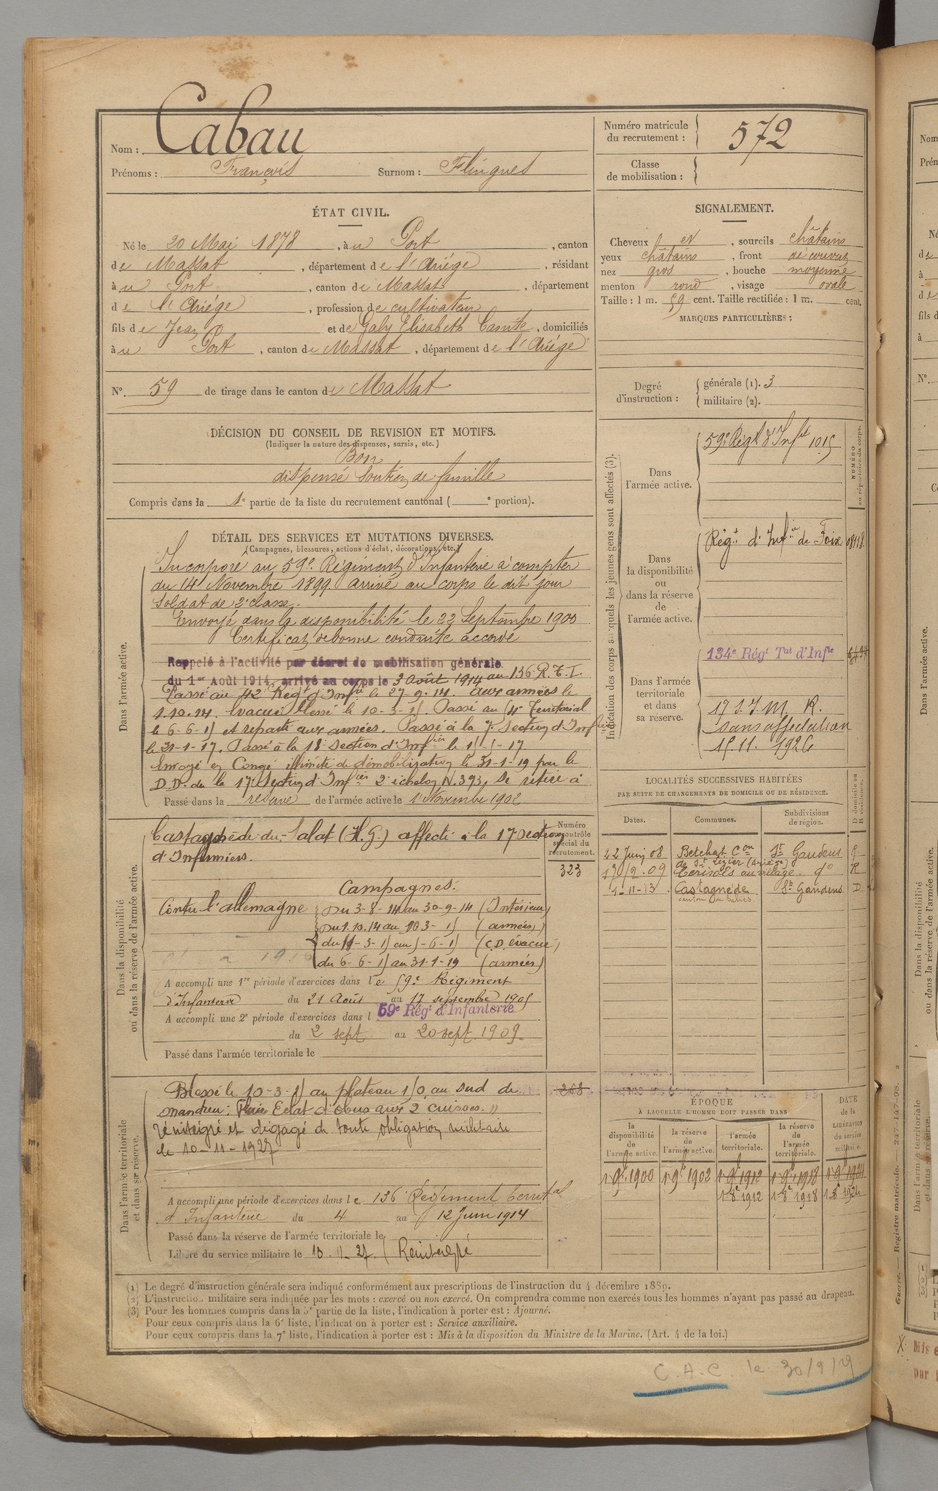 Nom : Cabau
Prénoms : François Surnom : Flingues
Numéro matricule du recrutement : 572
Classe de mobilisation :
ÉTAT CIVIL.
Né le 20 Mai 1878, à u Port, canton
de Massat, département de l'Ariége, résidant
à u Port, canton de Massat, département
de l'Ariége, profession de cultivateur
fils de Jean et de Galy Elisabeth Cointe, domiciliés
à u Port, canton de Massat, département de l'Ariége
N° 59 de tirage dans le canton de Massat
SIGNALEMENT.
Cheveux et, sourcils châtains
yeux châtains, front découvert
nez gros, bouche moyenne
menton rond, visage ovale
Taille : 1 m. 59 cent. Taille rectifiée : 1 m. cent.
MARQUES PARTICULIÈRES :
Degré d'instruction : générale (1). 3
militaire (2).
DÉCISION DU CONSEIL DE REVISION ET MOTIFS.
(Indiquer la nature des dispenses, sursis, etc.)
Bon
dispensé Soutien de famille
Compris dans la 1e partie de la liste du recrutement cantonal ( e portion).
DÉTAIL DES SERVICES ET MUTATIONS DIVERSES.
(Campagnes, blessures, actions d'éclat, décorations, etc.)
Dans l'armée active.
Incorporé au 59e Régiment d'Infanterie à compter
du 14 Novembre 1899 arrivé au corps le dit jour
Soldat de 2e classe.
Envoyé dans la disponibilité le 22 Septembre 1900
Certificat de bonne conduite accordé
Rappelé à l'activité par décret de mobilisation générale
du 1er Août 1914, arrivé au corps le 3 Août 1914 au 136 R.T.I.
Passé au 42 Régt d'Infie le 27-9-14. aux armées le
1.10.14. Evacué blessé le 10-3-15. Passé au 14e Territorial
le 6-6-15 et reparti aux armées. Passé à la 7 Section d'Infiers
le 31-1-17. Passé à la 18 Section d'Infiers le 1-17
Envoyé en Congé illimité de démobilisation le 31-1-19 par le
D.D. de la 17 Section d'Infiers 2 échelon N. 393, Se retire à
Passé dans la réserve de l'armée active le 1 Novembre 1902
Dans la disponibilité ou dans la réserve de l'armée active.
Castagnède-du-Salat (H.G) affecté à la 17 Section
d'Infirmiers.
Numéro au contrôle spécial du recrutement.
323
Campagnes :
Contre l'allemagne du 3-8-14 au 30-9-14 (Intérieur)
du 1.10.14 au 10-3-15 (armées)
du 11-3-15 au 5-6-15 (C.D. évacué)
du 6-6-15 au 31-1-19 (armées)
A accompli une 1re période d'exercices dans le 59e Régiment
d'Infanterie du 21 Août au 17 septembre 1905
A accompli une 2e période d'exercices dans l 59e Régt d'Infanterie
du 2 sept au 20 sept 1909.
Passé dans l'armée territoriale le
Dans l'armée territoriale et dans sa réserve.
Blessé le 10-3-15 au plateau 170 au sud de
: Plaie Eclat d'obus aux 2 cuisses. "
Réintégré et dégagé de toute obligation militaire
le 10-11-1927
A accompli une période d'exercices dans le 136 Régiment territal
d'Infanterie du 4 au 12 Juin 1914
Passé dans la réserve de l'armée territoriale le
Libéré du service militaire le 10.11.27. Réintégré
Indication des corps auxquels les jeunes gens sont affectés (3).
Dans l'armée active.
59e Régt d'Infie 1015
Dans la disponibilité ou dans la réserve de l'armée active.
Régt d'Infie de Foix
Dans l'armée territoriale et dans sa réserve.
134e Régt Tal d'Infie
17 S.I.M. R.
sans affectation
15.11.1926
LOCALITÉS SUCCESSIVES HABITÉES
PAR SUITE DE CHANGEMENTS DE DOMICILE OU DE RÉSIDENCE.
Dates. Communes. Subdivisions de région.
22 Juin 08 Betchat Con St Gaudens
de St Lizier (Ariège)
17-9-09 Cerisols au village do R
4-11-13 Castagnède St Gaudens D
canton de Salies
ÉPOQUE
À LAQUELLE L'HOMME DOIT PASSER DANS
la disponibilité de l'armée active. la réserve de l'armée active. l'armée territoriale. la réserve de l'armée territoriale. DATE de la LIBÉRATION du service militaire.
1 9bre 1900 1 9bre 1902 1 9bre 1912 1 9bre 1918 1 9bre 1924
1 8bre 1912 1 8bre 1918 1 8bre 1924
(1) Le degré d'instruction générale sera indiqué conformément aux prescriptions de l'instruction du 4 décembre 1889.
(2) L'instruction militaire sera indiquée par les mots : exercé ou non exercé. On comprendra comme non exercés tous les hommes n'ayant pas passé au drapeau.
(3) Pour les hommes compris dans la 5e partie de la liste, l'indication à porter est : Ajourné.
Pour ceux compris dans la 6e liste, l'indication à porter est : Service auxiliaire.
Pour ceux compris dans la 7e liste, l'indication à porter est : Mis à la disposition du Ministre de la Marine. (Art. 4 de la loi.)
C.A.C. le 30/9/29